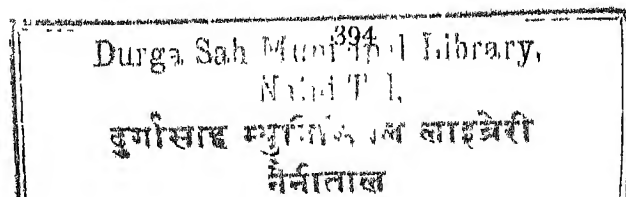 394
Durga Sah Municipal Library,
Naini Tal,
दुर्गासाह म्युनिसिपल लाइब्रेरी
नैनीताल